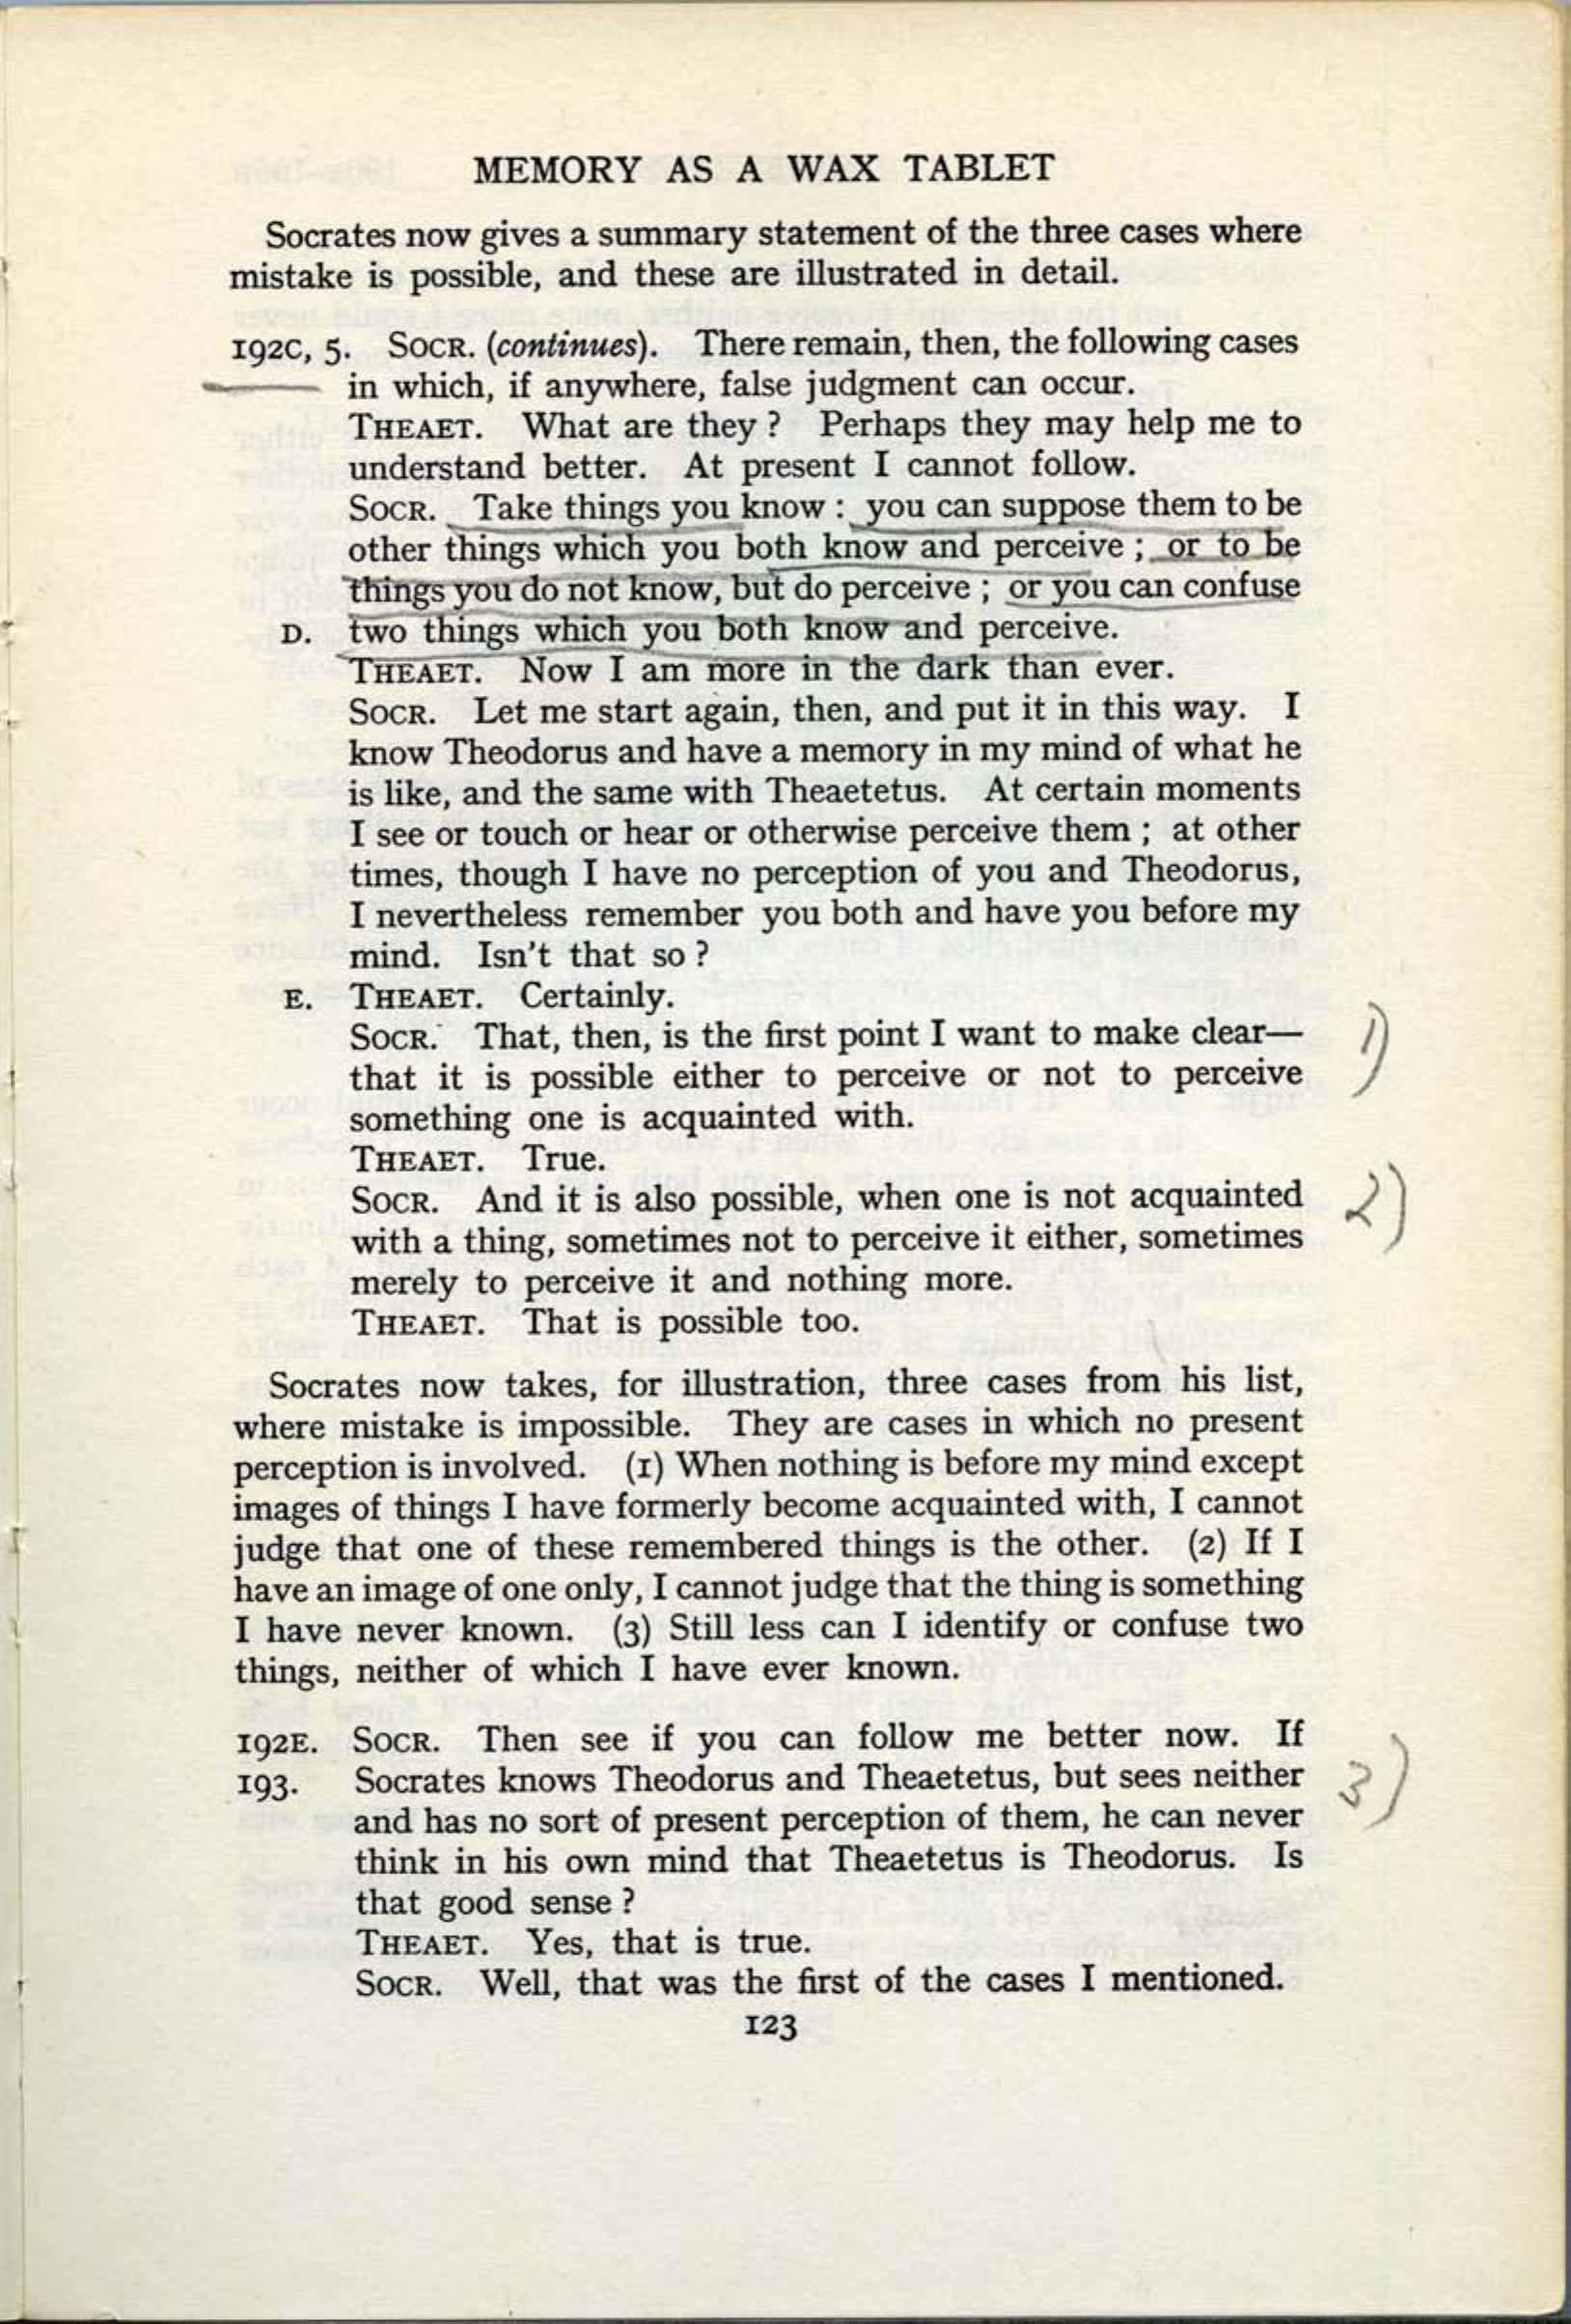 MEMORY AS A WAX TABLET
Socrates now gives a summary statement of the three cases where
mistake is possible, and these are illustrated in detail.
192C, 5. SOCR. (continues). There remain, then, the following cases
in which, if anywhere, false judgment can occur.
THEAET. What are they ? Perhaps they may help me to
understand better. At present I cannot follow.
SOCR. Take things you know : you can suppose them to be
other things which you both know and perceive ; or to be
things you do not know, but do perceive ; or you can confuse
D. two things which you both know and perceive.
THEAET. Now I am more in the dark than ever.
SOCR. Let me start again, then, and put it in this way. I
know Theodorus and have a memory in my mind of what he
is like, and the same with Theaetetus. At certain moments
I see or touch or hear or otherwise perceive them ; at other
times, though I have no perception of you and Theodorus,
I nevertheless remember you both and have you before my
mind. Isn't that so ?
E. THEAET. Certainly.
SOCR. That, then, is the first point I want to make clear— 1)
that it is possible either to perceive or not to perceive
something one is acquainted with.
THEAET. True.
SOCR. And it is also possible, when one is not acquainted 2)
with a thing, sometimes not to perceive it either, sometimes
merely to perceive it and nothing more.
THEAET. That is possible too.
Socrates now takes, for illustration, three cases from his list,
where mistake is impossible. They are cases in which no present
perception is involved. (1) When nothing is before my mind except
images of things I have formerly become acquainted with, I cannot
judge that one of these remembered things is the other. (2) If I
have an image of one only, I cannot judge that the thing is something
I have never known. (3) Still less can I identify or confuse two
things, neither of which I have ever known.
192E. SOCR. Then see if you can follow me better now. If
193. Socrates knows Theodorus and Theaetetus, but sees neither 3)
and has no sort of present perception of them, he can never
think in his own mind that Theaetetus is Theodorus. Is
that good sense ?
THEAET. Yes, that is true.
SOCR. Well, that was the first of the cases I mentioned.
123